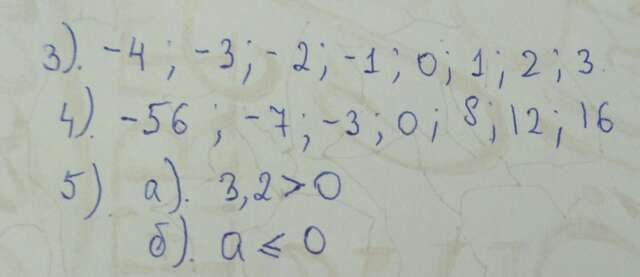 3). -4 ; -3 ; -2 ; -1 ; 0 ; 1 ; 2 ; 3.
4). -56 ; -7 ; -3 ; 0 ; 8 ; 12 ; 16
5) а). 3,2 > 0
б). a ⩽ 0